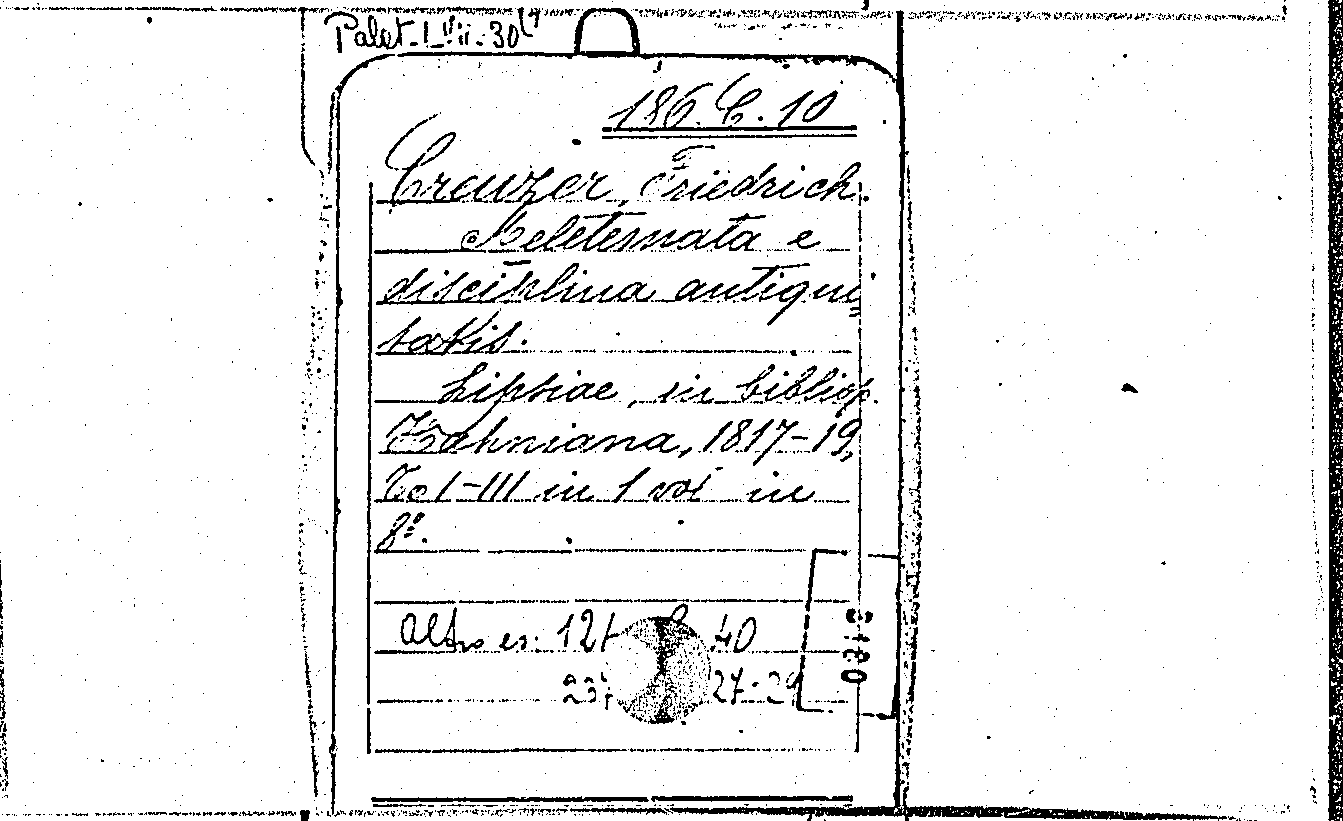 Palat. L
186. C. 10
Creuzer, Friedrich.
Meletemata e
disciplina antiqui
tatis.
Lipsiae, in bibliop.
Hahniana, 1817-19,
To I-III in 1 vol in
8º.
Altro es: 40
27-29